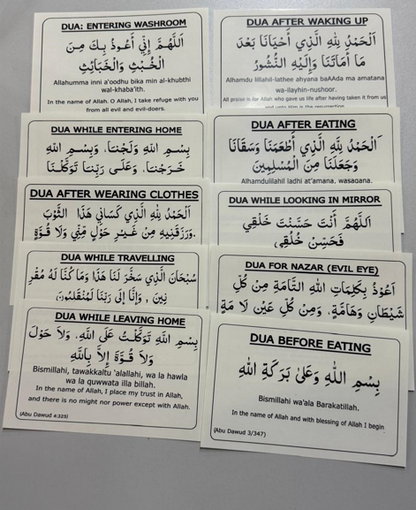 DUA: ENTERING WASHROOM
اَللّٰهُمَّ إِنِّي أَعُوذُ بِكَ مِنَ
الْخُبْثِ وَالْخَبَائِثِ
Allahumma inni a'oodhu bika min al-khubthi
wal-khaba'ith.
In the name of Allah. O Allah, I take refuge with you
from all evil and evil-doers.
DUA AFTER WAKING UP
اَلْحَمْدُ لِلّٰهِ الَّذِي أَحْيَانَا بَعْدَ
مَا أَمَاتَنَا وَإِلَيْهِ النُّشُورُ
Alhamdu lillahil-lathee ahyana baAAda ma amatana
wa-ilayhin-nushoor.
All praise is for Allah who gave us life after having taken it from us
DUA WHILE ENTERING HOME
بِسْمِ اللّٰهِ وَلَجْنَا، وَبِسْمِ اللّٰهِ
خَرَجْنَا، وَعَلَى رَبِّنَا تَوَكَّلْنَا
DUA AFTER EATING
اَلْحَمْدُ لِلّٰهِ الَّذِي أَطْعَمَنَا وَسَقَانَا
وَجَعَلَنَا مِنَ الْمُسْلِمِينَ
Alhamdulilahil ladhi at'amana, wasaqana,
DUA AFTER WEARING CLOTHES
اَلْحَمْدُ لِلّٰهِ الَّذِي كَسَانِي هَذَا الثَّوْبَ
وَرَزَقَنِيهِ مِنْ غَيْرِ حَوْلٍ مِنِّي وَلَا قُوَّةٍ
DUA WHILE LOOKING IN MIRROR
اَللّٰهُمَّ أَنْتَ حَسَّنْتَ خَلْقِي
فَحَسِّنْ خُلُقِي
DUA WHILE TRAVELLING
سُبْحَانَ الَّذِي سَخَّرَ لَنَا هَذَا وَمَا كُنَّا لَهُ مُقْرِ
نِينَ ، وَإِنَّا إِلَى رَبِّنَا لَمُنْقَلِبُونَ
DUA FOR NAZAR (EVIL EYE)
اَعُوْذُ بِكَلِمَاتِ اللّٰهِ التَّامَّةِ مِنْ كُلِّ
شَيْطَانٍ وَهَامَّةٍ، وَمِنْ كُلِّ عَيْنٍ لَا مَةٍ
DUA WHILE LEAVING HOME
بِسْمِ اللّٰهِ تَوَكَّلْتُ عَلَى اللّٰهِ، وَلَا حَوْلَ
وَلَا قُوَّةَ إِلَّا بِاللّٰهِ
Bismillahi, tawakkaltu 'alallahi, wa la hawla
wa la quwwata illa billah.
In the name of Allah, I place my trust in Allah,
and there is no might nor power except with Allah.
(Abu Dawud 4:325)
DUA BEFORE EATING
بِسْمِ اللّٰهِ وَعَلىٰ بَرَكَةِ اللّٰهِ
Bismillahi wa'ala Barakatillah.
In the name of Allah and with blessing of Allah I begin
(Abu Dawud 3/347)